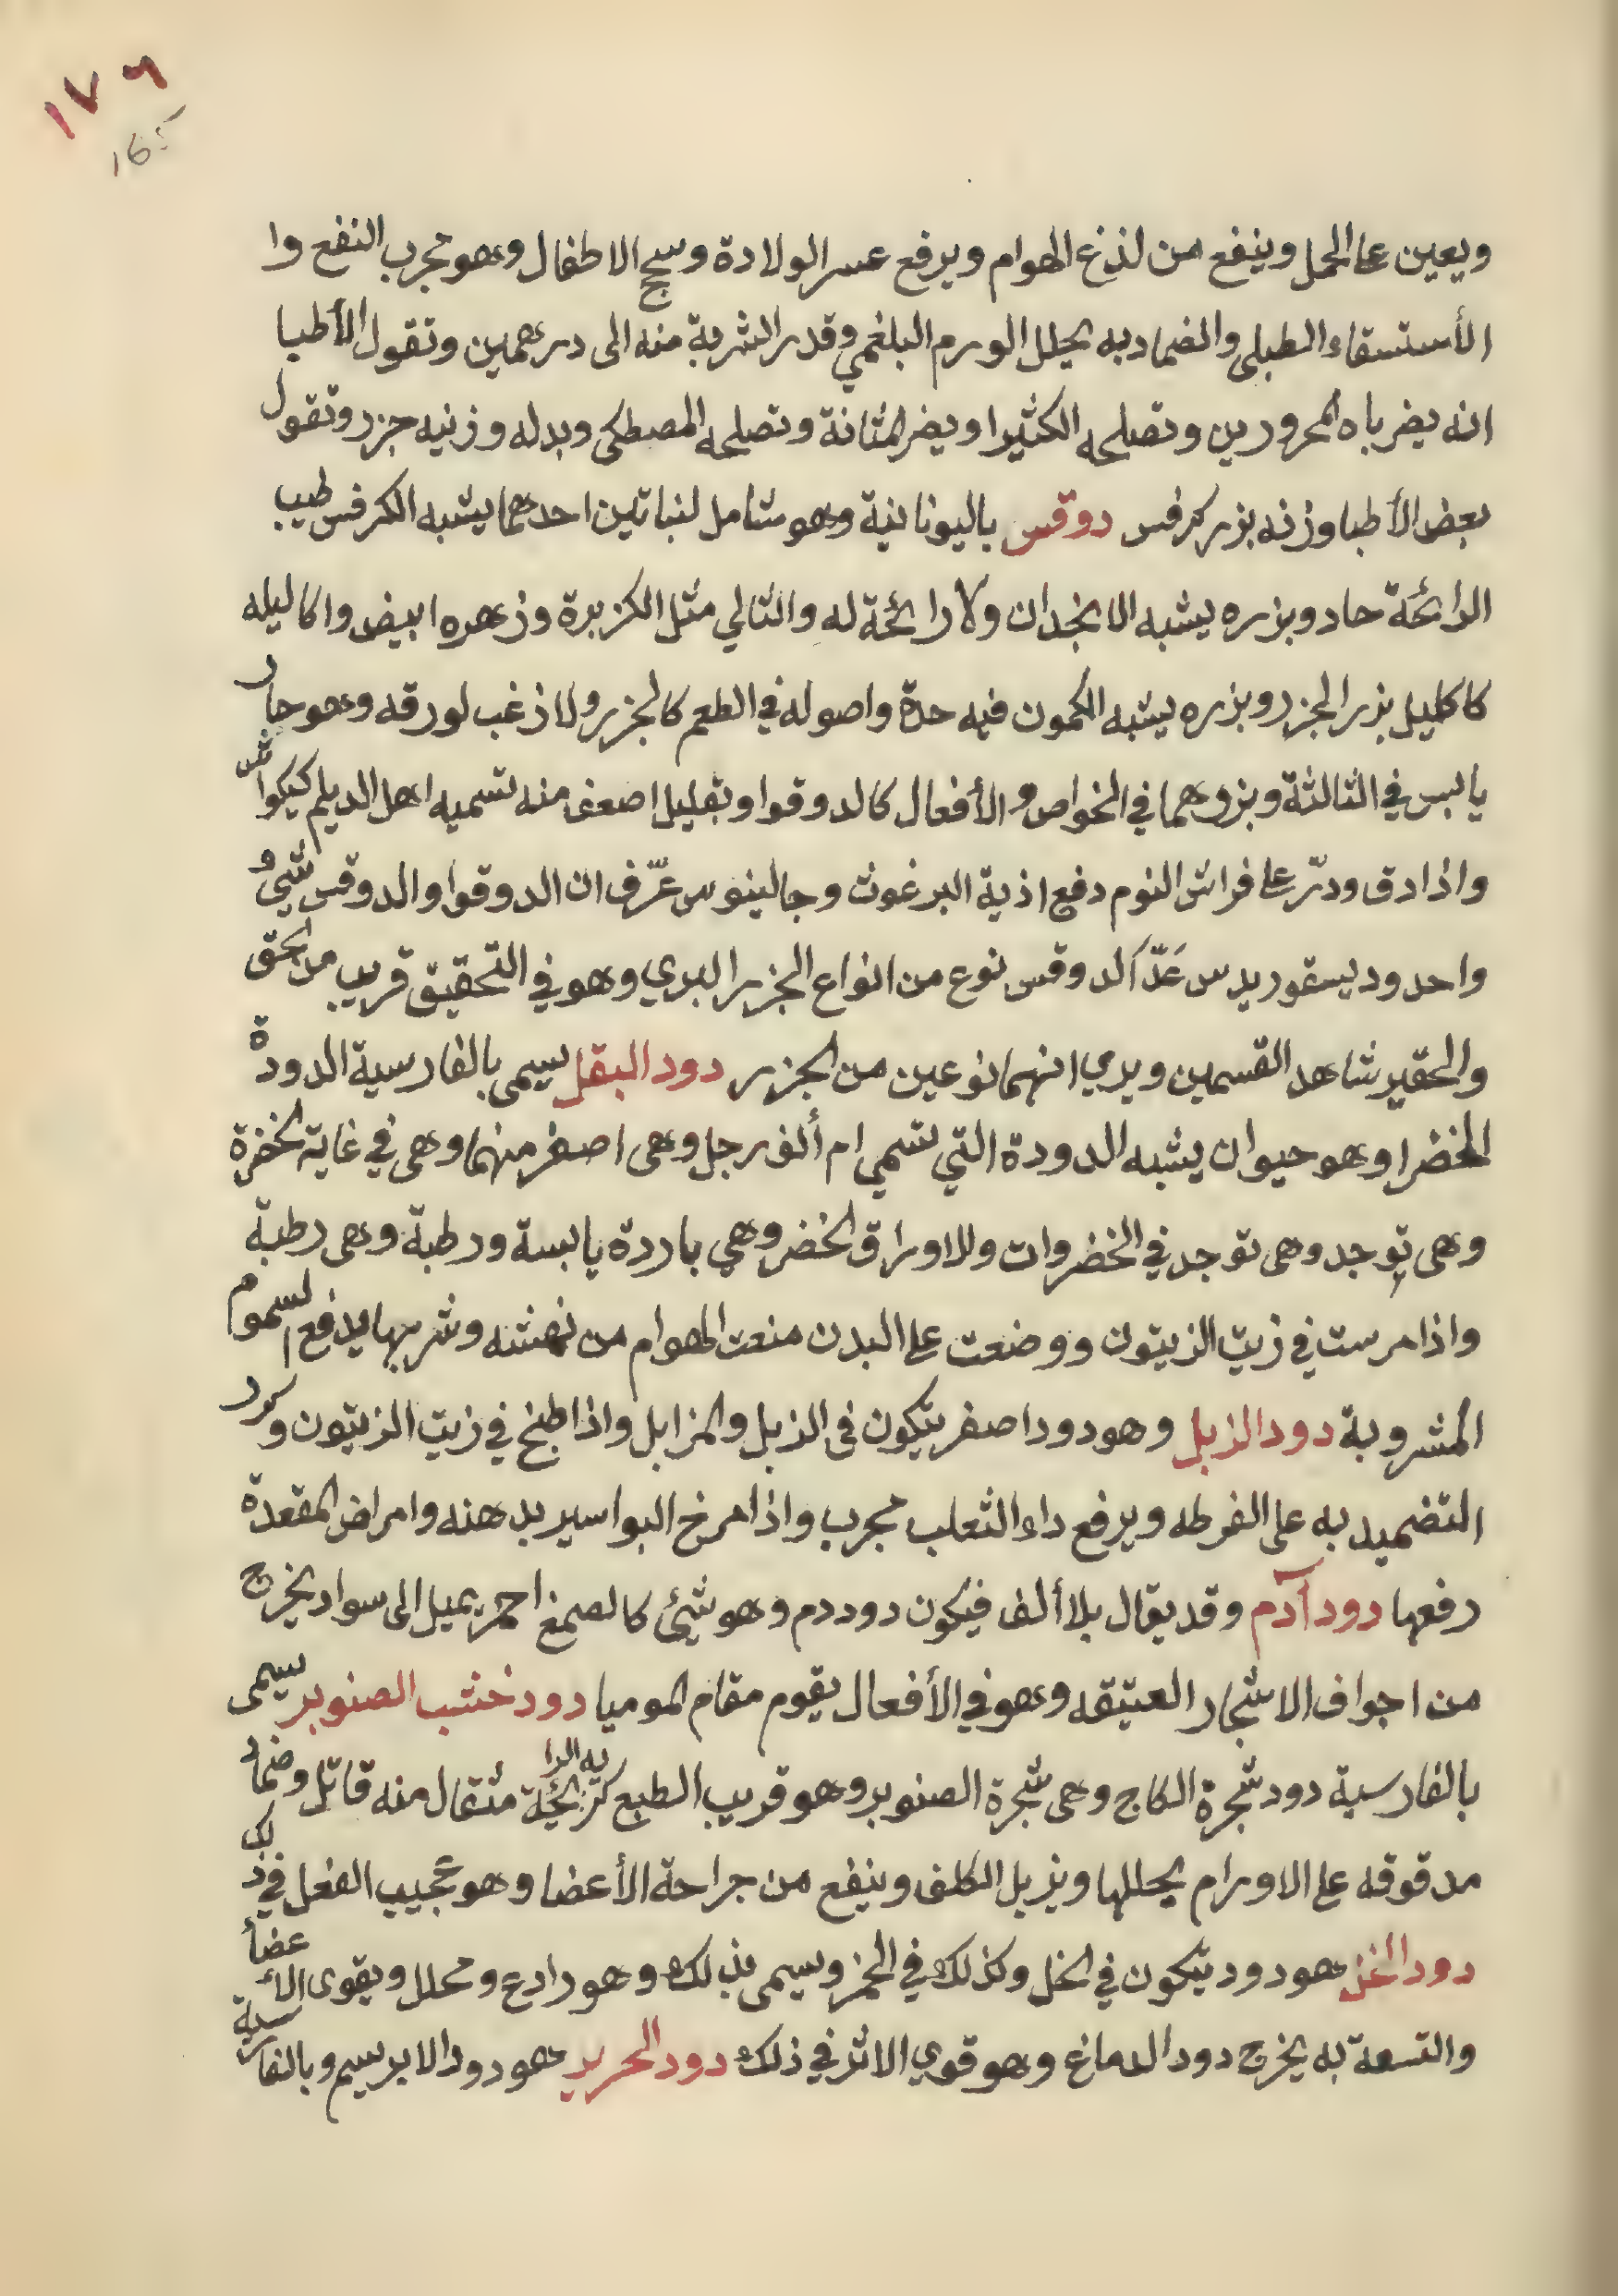 ١٧٦
165
ويعين على الحمل وينفع من لذغ الهوام ويرفع عسر الولادة وسحج الاطفال وهو مجرب النفع وا
الأستسقاء الطبلي والضماد به يحلل الورم البلغمي وقدر الشربة منه الى درهمين وتقول الأطبا
انه يضر باه المحرورين وتصلحه الكثيرا ويضر المثانة وتصلحه المصطكى وبدله وزنيه جزر وتقول
بعض الأطبا وزنه بزر كرفس دوقس باليونانية وهو شامل لنباتين احدهما يشبه الكرفس طيب
الرائحة حاد وبزره يشبه الانجدان ولا رائحة له والتالي مثل الكزبرة وزهره ابيض واكاليله
كاكليل بزر الجزر وبزره يشبه الكمون فيه حدة واصوله في الطعم كالجزر ولا زغب لورقه وهو حار
يابس في الثالثة وبزرهما في الخواص والأفعال كالدوقوا وبقليل اضعف منه تسميه اهل الديلم كيكواش
واذا دق ودر على فراش النوم دفع اذية البرغوث وجالينوس عرّف ان الدوقوا والدوقس شيءٌ
واحد وديسقوريدس عَدّ الدوقس نوع من انواع الجزر البري وهو في التحقيق قريب من الحق
والحقير شاهد القسمين ويري انهما نوعين من الجزر دود البقل يسمى بالفارسية الدودة
الخضرا وهو حيوان يشبه الدودة التي تسمي ام ألف رجل وهى اصغر منهما وهى في غاية الخضرة
وهى توجد وهى توجد في الخضروات والاوراق الخضر وهي باردة يابسة ورطبة وهى رطبة
واذا مرست في زيت الزيتون ووضعت على البدن منعت الهوام من نهشه وشربها يدفع السموم
المشروبة دود الزبل وهو دود اصفر يتكون فى الزبل والمزابل واذا طبخ في زيت الزيتون وكرر
التضميد به على القرطه ويرفع داء الثعلب مجرب واذا مرخ البواسير بدهنه وامراض المقعدة
رفعها دود آدم وقد يقال بلا ألف فيكون دوددم وهو شيئ كالصمغ احمر يميل الى سواد يخرج
من اجواف الاشجار العتيقه وهو في الأفعال يقوم مقام الموميا دود خشب الصنوبر يسمى
بالفارسية دود شجرة الكاج وهى شجرة الصنوبر وهو قريب الطبع كريه الرائحة مثقال منه قاتل وضماد
مدقوقه على الاورام يحللها ويزيل الكلف وينفع من جراحة الأعضا وهو عجيب الفعل في ذلك
دود الخل هو دود يتكون في الخل وكذلك في الخمر ويسمى بذلك وهو رادع ومحلل ويقوى الأعضأ
والتسعة به يخرج دود الدماغ وهو قوي الاثر في ذلك دود الحرير هو دود الابريسم وبالفارسية